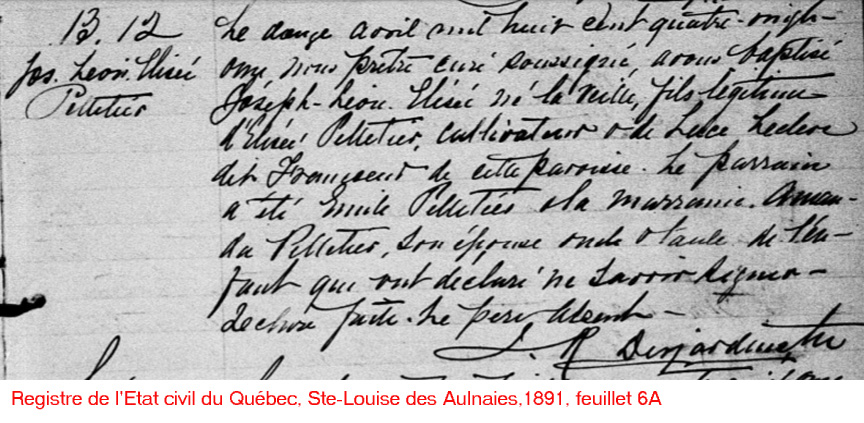 B. 12
Jos. Leon. Elisée
Pelletier
Le douze avril mil huit cent quatre-vingt-
onze, nous prêtre curé soussigné, avons baptisé
Joseph-Léon. Elisée né la veille, fils légitime
d'Elisée Pelletier, cultivateur & de Luce Leclerc
dit Francoeur de cette paroisse. Le parrain
a été Emile Pelletier & la marraine. Aman-
da Pelletier, son épouse oncle & tante de l'en-
fant qui ont déclaré ne savoir signer-
Lecture faite. Le père absent-
Desjardins Ptre
Registre de l'Etat civil du Québec, Ste-Louise des Aulnaies,1891, feuillet 6A